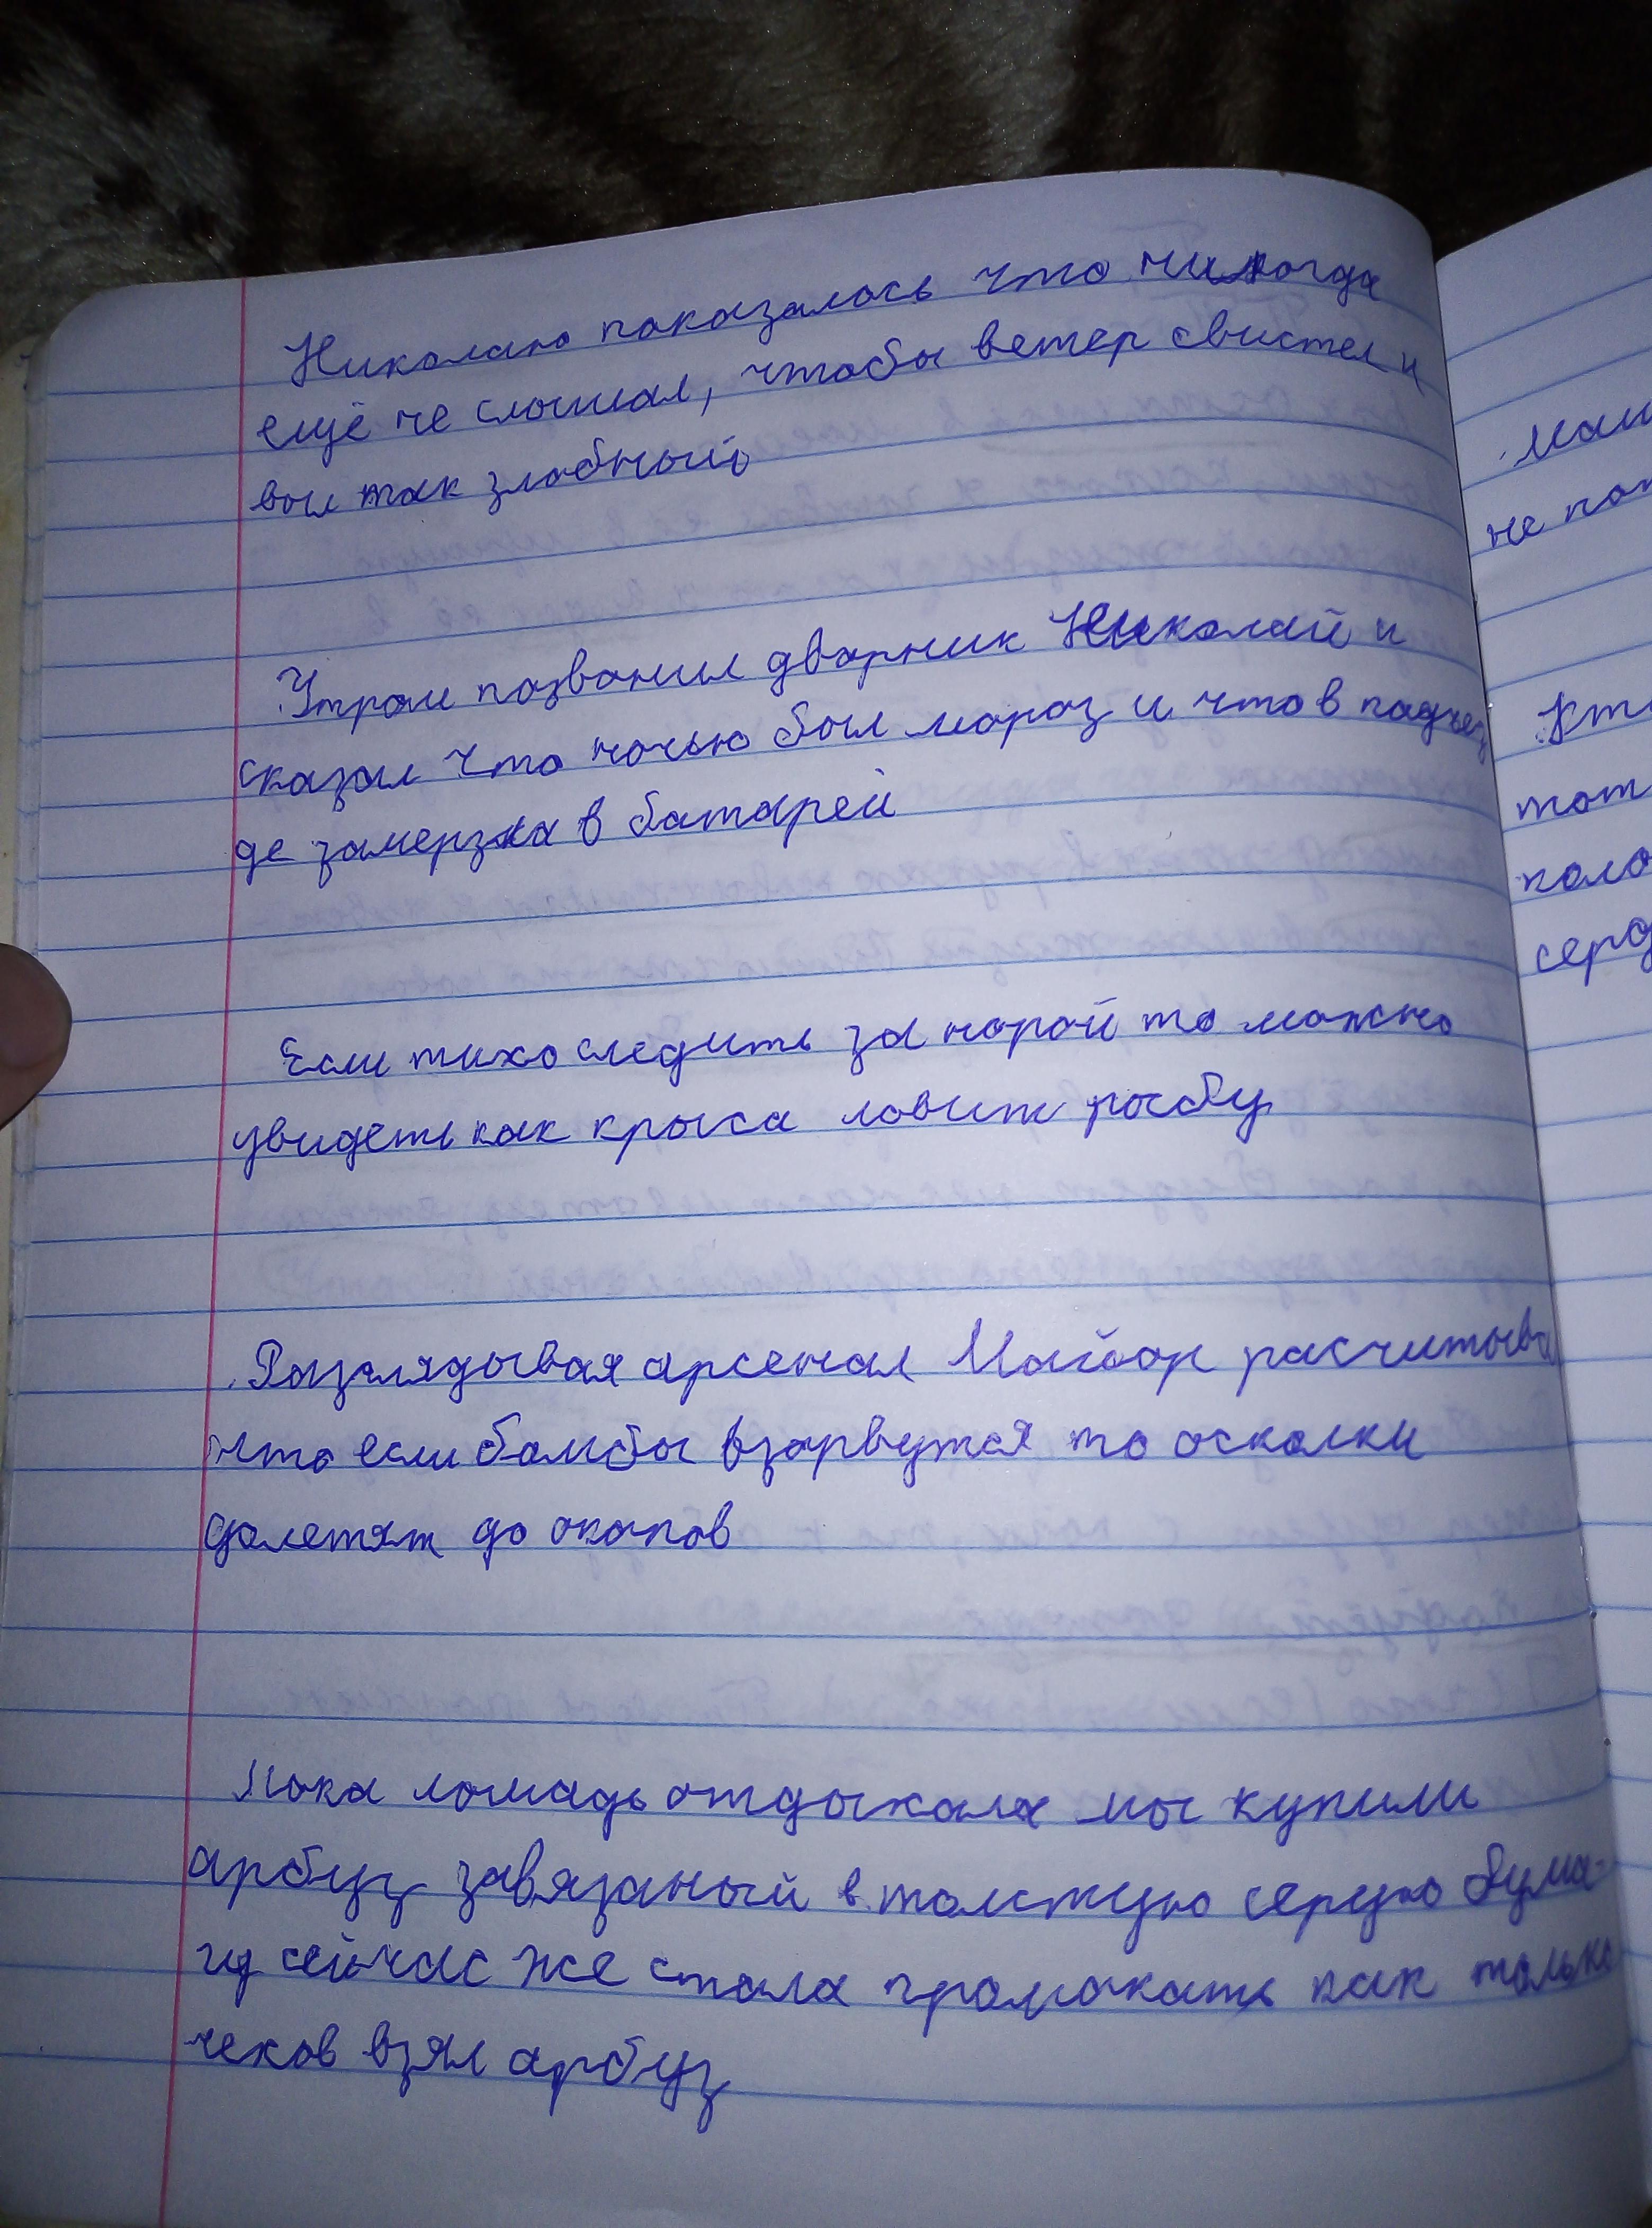 Николаю показалось что никогда
ещё не слышал, чтобы ветер свистел и
выл так злобный
Утром позвонил дворник Николай и
сказал что ночью был мороз и что в подъез
де замерзла в батарей
Если тихо следить за норой то можно
увидеть как крыса ловит рыбу
Разглядывая арсенал Майор расчитыва
что если бомбы взорвутся то осколки
долетят до окопов
Пока лошадь отдыхала мы купили
арбуз завязаный в толстую серую бума-
гу сейчас же стала промокать как только
чехов взял арбуз
не
тот